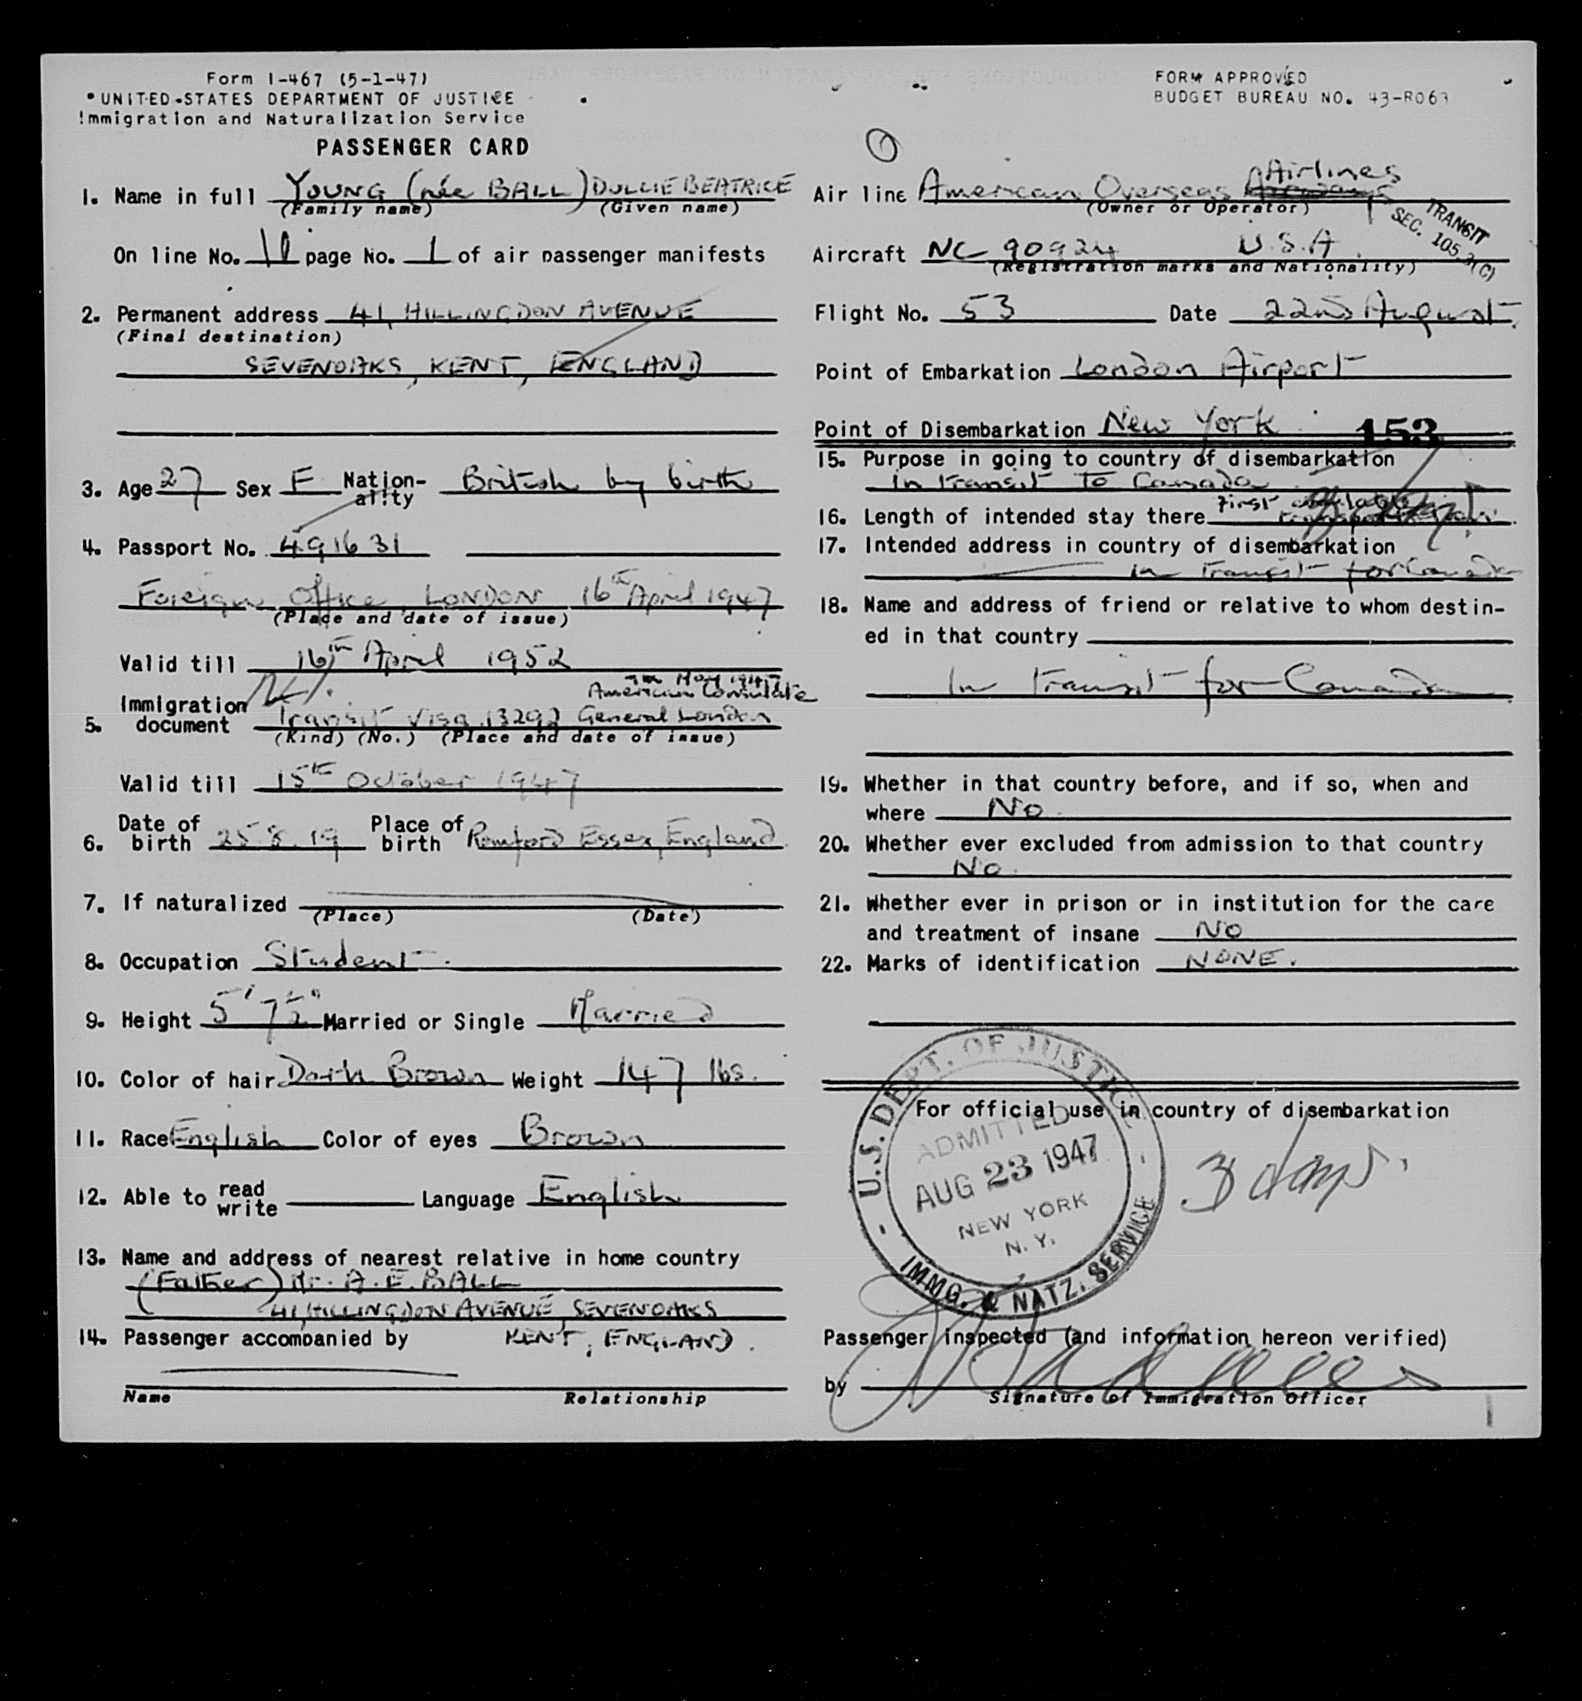 Form I-467 (5-1-47)
UNITED STATES DEPARTMENT OF JUSTICE
Immigration and Naturalization Service
PASSENGER CARD
FORM APPROVED
BUDGET BUREAU NO. 43-R063
1. Name in full YOUNG (née BALL) DULLIE BEATRICE
(Family name) (Given name)
On line No. 10 page No. 1 of air passenger manifests
2. Permanent address 41, HILLINGDON AVENUE
(Final destination)
SEVENOAKS, KENT, ENGLAND
3. Age 27 Sex F Nationality British by birth
4. Passport No. 491631
Foreign Office LONDON 16th April 1947
(Place and date of issue)
Valid till 16th April 1952
May 1947
American Consulate
Immigration
5. document Transit Visa 13292 General London
(Kind) (No.) (Place and date of issue)
Valid till 15th October 1947
6. Date of birth 25.8.19 Place of birth Romford Essex, England
7. If naturalized
(Place) (Date)
8. Occupation Student.
9. Height 5' 7½" Married or Single Married
10. Color of hair Dark Brown Weight 147 lbs.
11. Race English Color of eyes Brown
12. Able to read write Language English
13. Name and address of nearest relative in home country
(Father) Mr. A. E. BALL
41, HILLINGDON AVENUE, SEVENOAKS
14. Passenger accompanied by KENT, ENGLAND.
Name Relationship
Airlines
Air line American Overseas
(Owner or Operator)
TRANSIT
SEC. 105.3(C)
Aircraft NC 90924 U.S.A.
(Registration marks and Nationality)
Flight No. 53 Date 22nd August
Point of Embarkation London Airport
Point of Disembarkation New York 153
15. Purpose in going to country of disembarkation
In transit to Canada
First available
16. Length of intended stay there
17. Intended address in country of disembarkation
In Transit for Canada
18. Name and address of friend or relative to whom destin-
ed in that country
In transit for Canada
19. Whether in that country before, and if so, when and
where No.
20. Whether ever excluded from admission to that country
No.
21. Whether ever in prison or in institution for the care
and treatment of insane No
22. Marks of identification NONE.
For official use in country of disembarkation
U.S. DEPT. OF JUSTICE
ADMITTED
AUG 23 1947
NEW YORK
N. Y.
IMMG. & NATZ. SERVICE
3 days.
Passenger inspected (and information hereon verified)
by
Signature of Immigration Officer